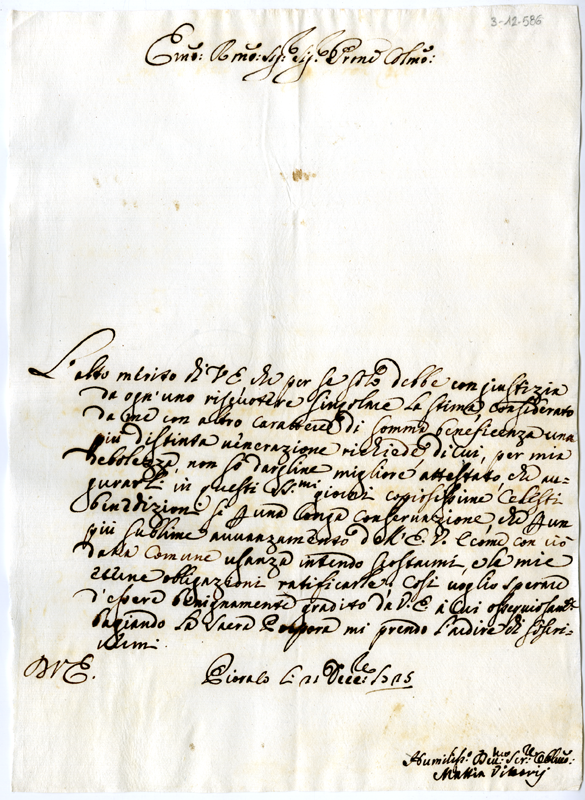 3-12-586
Emo: Rmo: Sig: Sig: Prone Colmo:
L'alto merito di V E che per se solo debbe con giustizia
da ogn'uno riscuotere singolare la stima considerato
da me con altro carattere di somma beneficenza una
più distinta venerazione richiede di cui, per mia
debolezza, non so dargline migliore attestato, che au-
gurarli in questi SS.mi giorni copiosissime Celesti
benedizioni sì una longa conservazione, che un
più sublime avvanzamento dell'E. V. e come con ciò
dalla comune usanza intendo scostarmi, e le mie
obligazioni ratificarle, così voglio sperare
d'essere benignamente gradito da V. E. a cui ossequiosamte
bagiando la Sacra Porpora mi prendo l'ardire di soscri-
vermi
D V E.
li 21 Dece
Humiliss.o Dev.mo Ser.re Oblmo:
Mattia